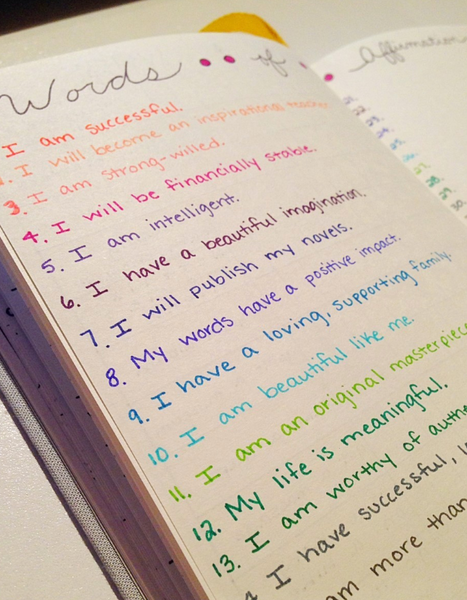 Words of Affirmation
I am successful.
I will become an inspirational teacher
3. I am strong-willed.
4. I will be financially stable.
5. I am intelligent.
6. I have a beautiful imagination.
7. I will publish my novels.
8. My words have a positive impact.
9. I have a loving, supporting family.
10. I am beautiful like me.
11. I am an original masterpiece
12. My life is meaningful.
13. I am worthy of
I have successful,
am more than
28.
29.
30.